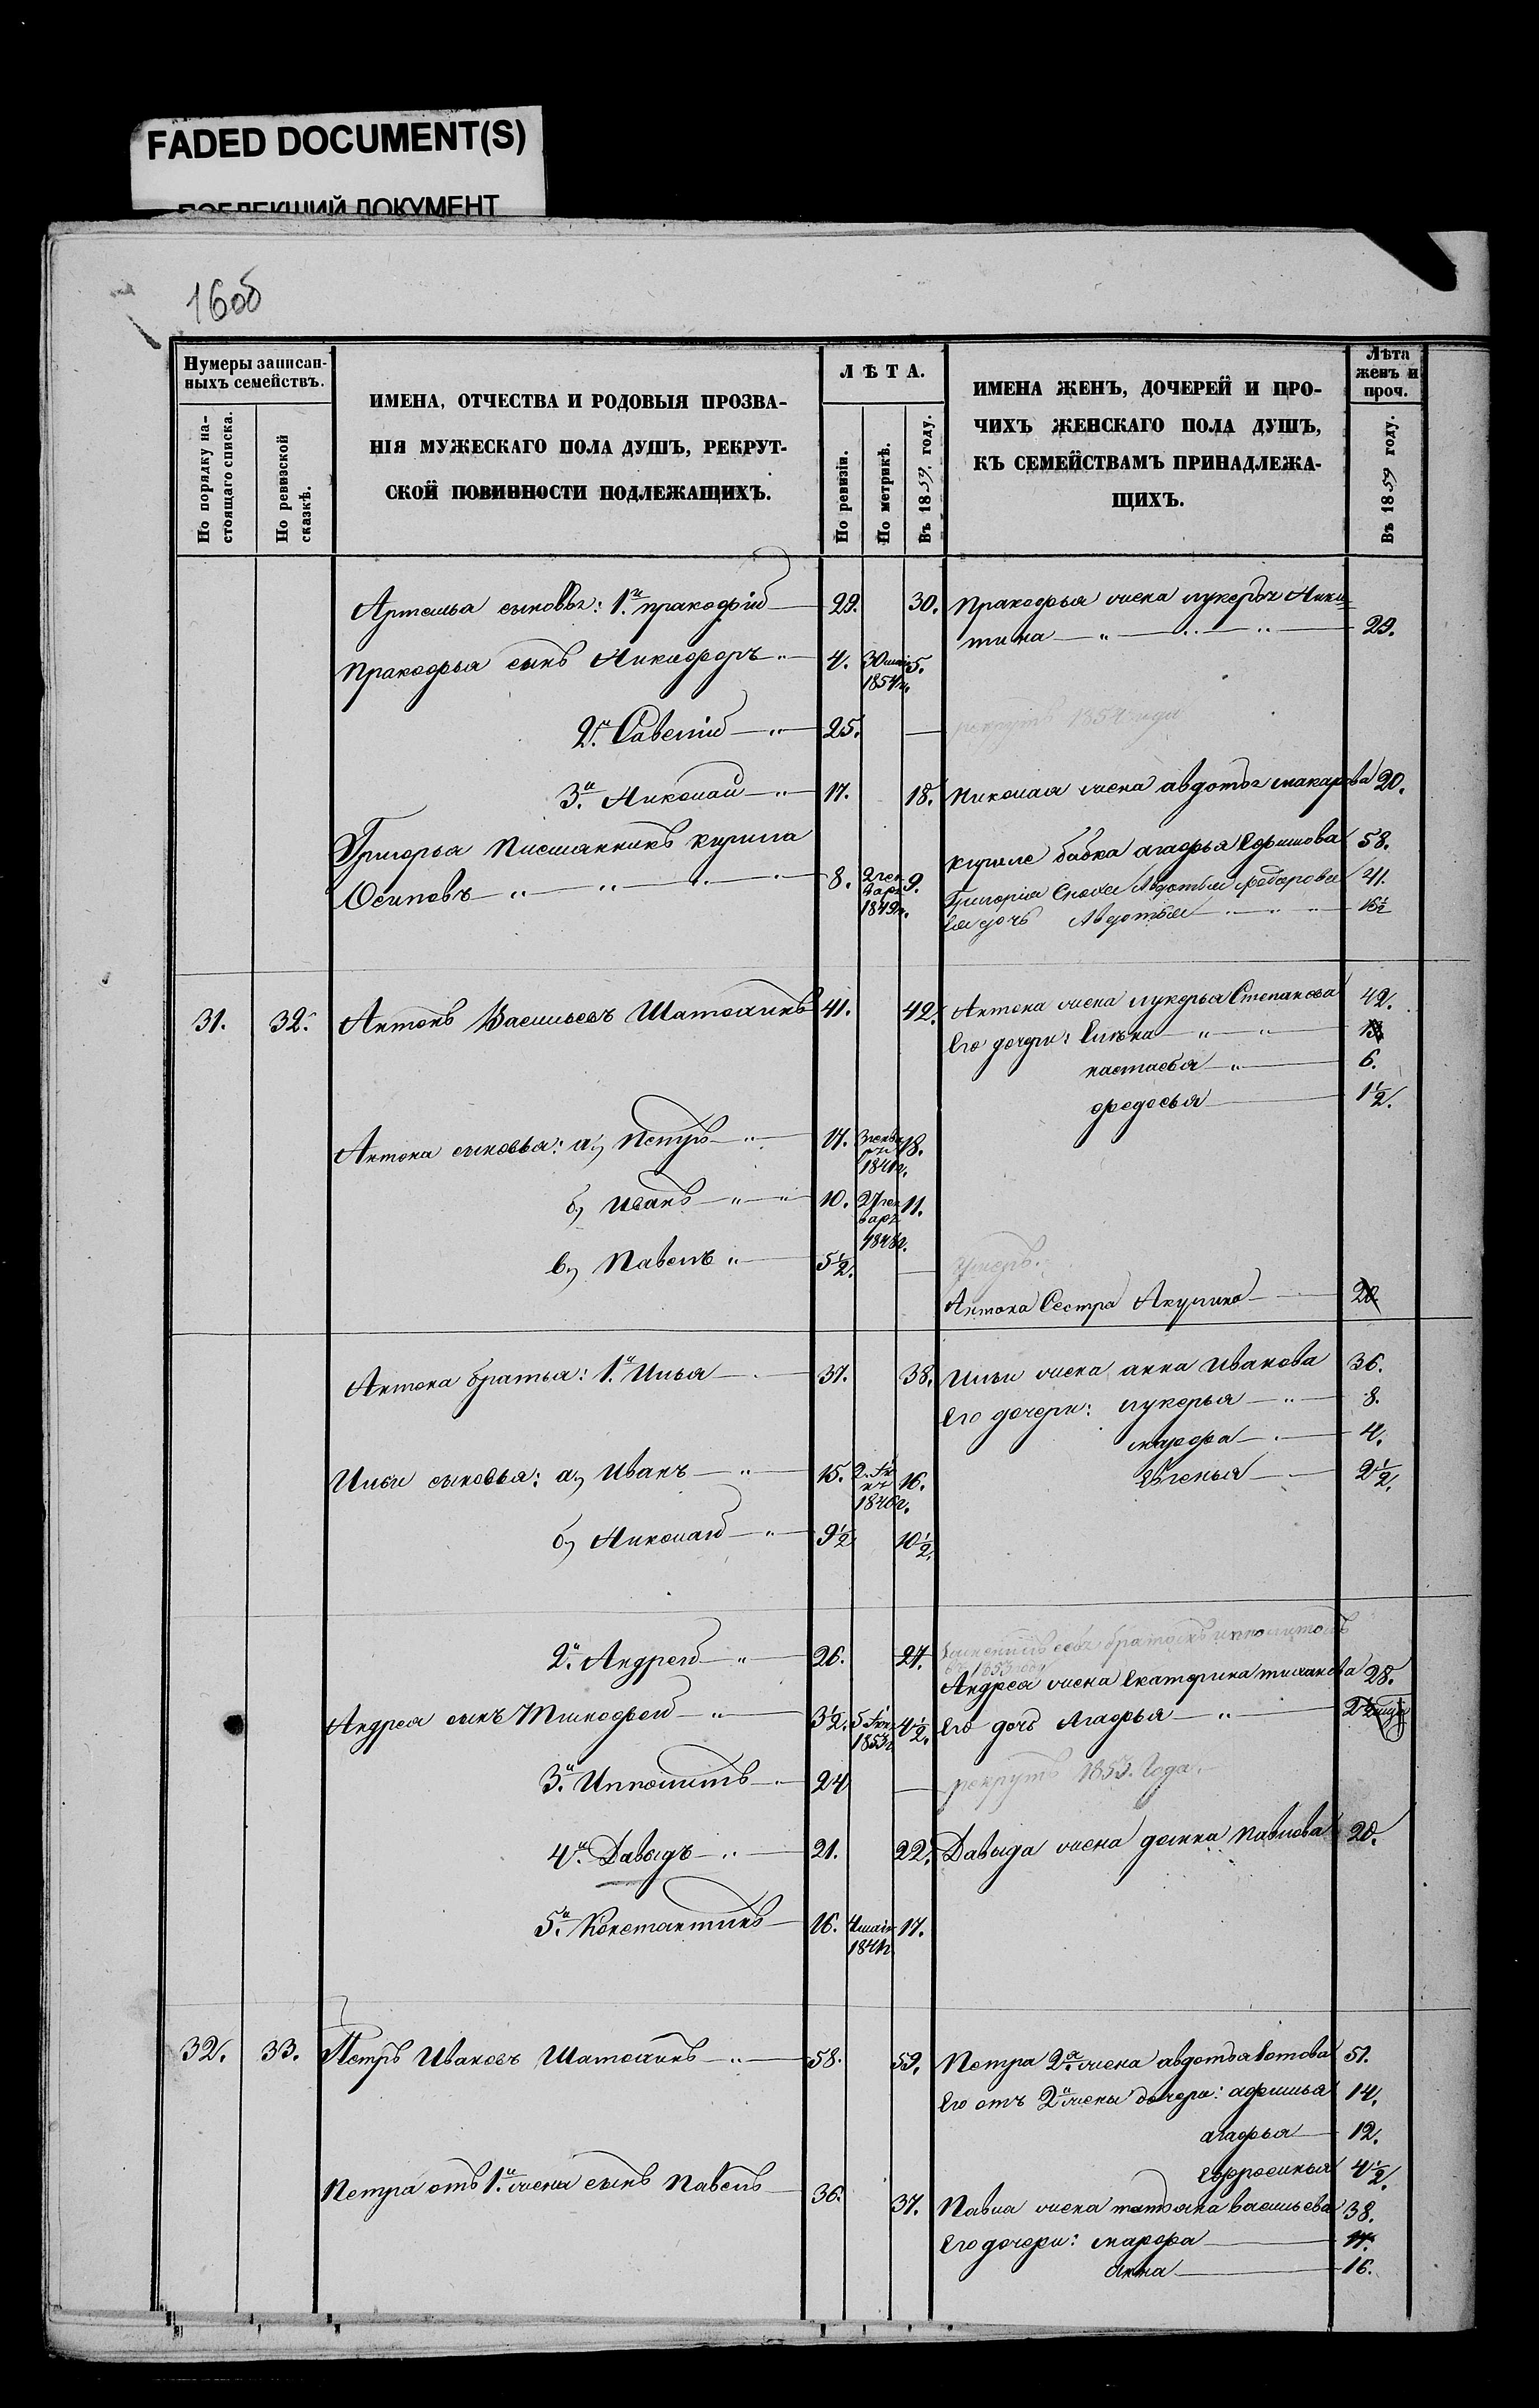 FADED DOCUMENT(S)
ПОБЛЕКШИЙ ДОКУМЕНТ
16об
Нумеры записан-
ныхъ семействъ.
По порядку на-
стоящаго списка.
По ревизской
сказкѣ.
ИМЕНА, ОТЧЕСТВА И РОДОВЫЯ ПРОЗВА-
НІЯ МУЖЕСКАГО ПОЛА ДУШЪ, РЕКРУТ-
СКОЙ ПОВИННОСТИ ПОДЛЕЖАЩИХЪ.
ЛѢТА.
По ревизіи.
По метрикѣ.
Въ 1859 году.
ИМЕНА ЖЕНЪ, ДОЧЕРЕЙ И ПРО-
ЧИХЪ ЖЕНСКАГО ПОЛА ДУШЪ,
КЪ СЕМЕЙСТВАМЪ ПРИНАДЛЕЖА-
ЩИХЪ.
Лѣта
женъ и
проч.
Въ 1859 году.
Артемья сыновья: 1й пракофій 29. 30. Пракофья жена лукерья Ники-
тина 29.
Пракофья сынъ Никифоръ 4. 30 мая 1854г. 5.
2й Савелій 25. — рекрутъ 1854 года
3й Николай 17. 18. Николая жена авдотья макарова 20.
Григорья Племянникъ кирила
Осиповъ 8. 1849г. 9.
кириле бабка агафья Ефимова 58.
Григорія Сноха Авдотья Федорова 41.
Ея дочь Авдотья 16½
31. 32. Антонъ Васильевъ Шатохинъ 41. 42. Антона жена лукерья Степанова 42.
Его дочери: Елена 13
настасья 6.
федосья 1½.
Антона сыновья: а, Петръ 17. 1841г. 18.
б, Иванъ 10. 27 ген варя 1848г. 11.
в, Павелъ 5½. — умеръ.
Антона Сестра Акулина 20
Антона братья: 1й Илья 37. 38. Ильи жена анна Иванова 36.
Его дочери: лукерья 8.
марфа 4.
Евгенья 2½.
Ильи сыновья: а, Иванъ 15. 16.
б, Николай 9½ 10½.
2й Андрей 26. 27. братомъ иполитомъ
1853 года
Андрея жена Екатерина тиханова 28.
Андрея сынъ Тимофей 3½. 1853г 4½. Его дочь Агафья 2
3й Ипполитъ 24 — рекрутъ 1853. Года.
4й Давыдъ 21. 22. Давыда жена домна павлова 20.
5й Константинъ 16. 1841г 17.
32. 33. Петръ Ивановъ Шатохинъ 58. 59. Петра 2я жена авдотья 51.
Его отъ 2й жены дочери: афимья 14.
агафья 12.
Ефросинья 4½.
Петра отъ 1й жены сынъ Павелъ 36. 37. Павла жена татьяна васильева 38.
Его дочери: марфа 17.
Анна 16.